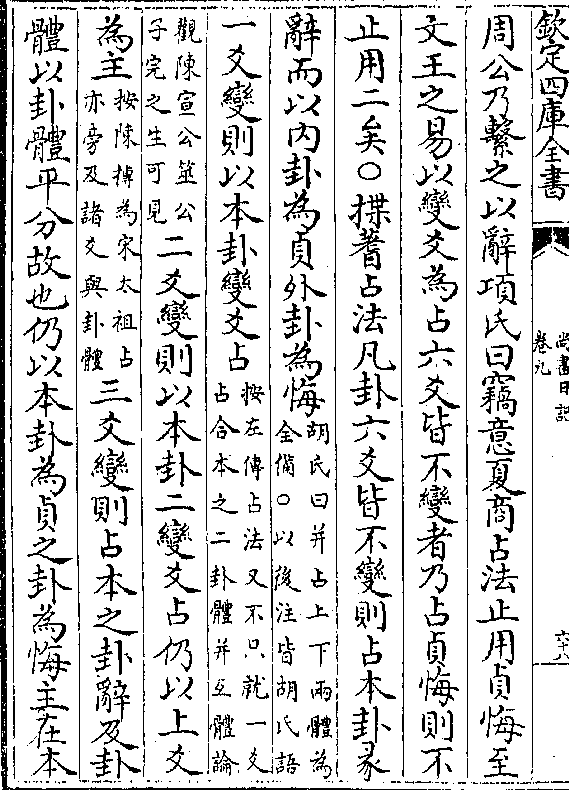 欽定四庫全書
尚書日記
卷九
六十八
周公乃繫之以辭項氏曰竊意夏商占法止用貞悔至
文王之易以變爻為占六爻皆不變者乃占貞悔則不
止用二矣○揲蓍占法凡卦六爻皆不變則占本卦彖
辭而以內卦為貞外卦為悔胡氏曰并占上下兩體為
全備○以後注皆胡氏語
一爻變則以本卦變爻占按左傳占法又不只就一爻
占合本之二卦體并互體論
觀陳宣公筮公
子完之生可見二爻變則以本卦二變爻占仍以上爻
為主按陳摶為宋太祖占
亦旁及諸爻與卦體三爻變則占本之卦辭及卦
體以卦體平分故也仍以本卦為貞之卦為悔主在本